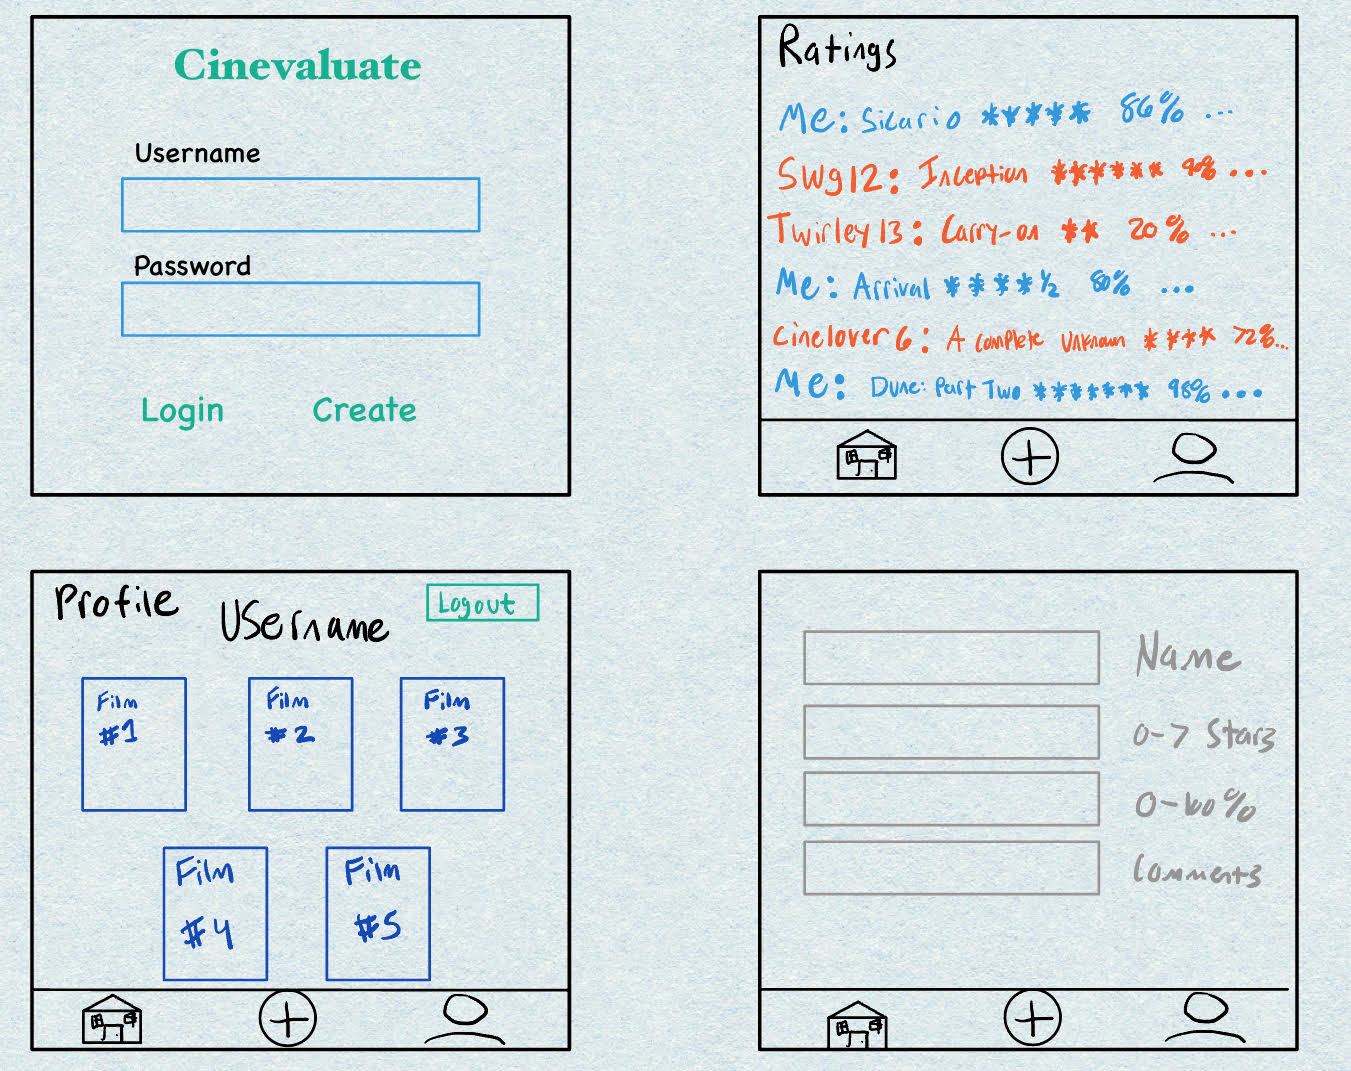 Cinevaluate
Username
Password
Login Create
Ratings
Me: Sicario ***** 86% ...
Swg12: Inception ****** 90% ...
Twirley13: Carry-on ** 20% ...
Me: Arrival ****½ 80% ...
Cinelover6: A Complete Unknown **** 72%...
Me: Dune: Part Two ******* 98% ...
Profile
Username
Logout
Film #1
Film #2
Film #3
Film #4
Film #5
Name
0-7 Stars
0-100%
Comments